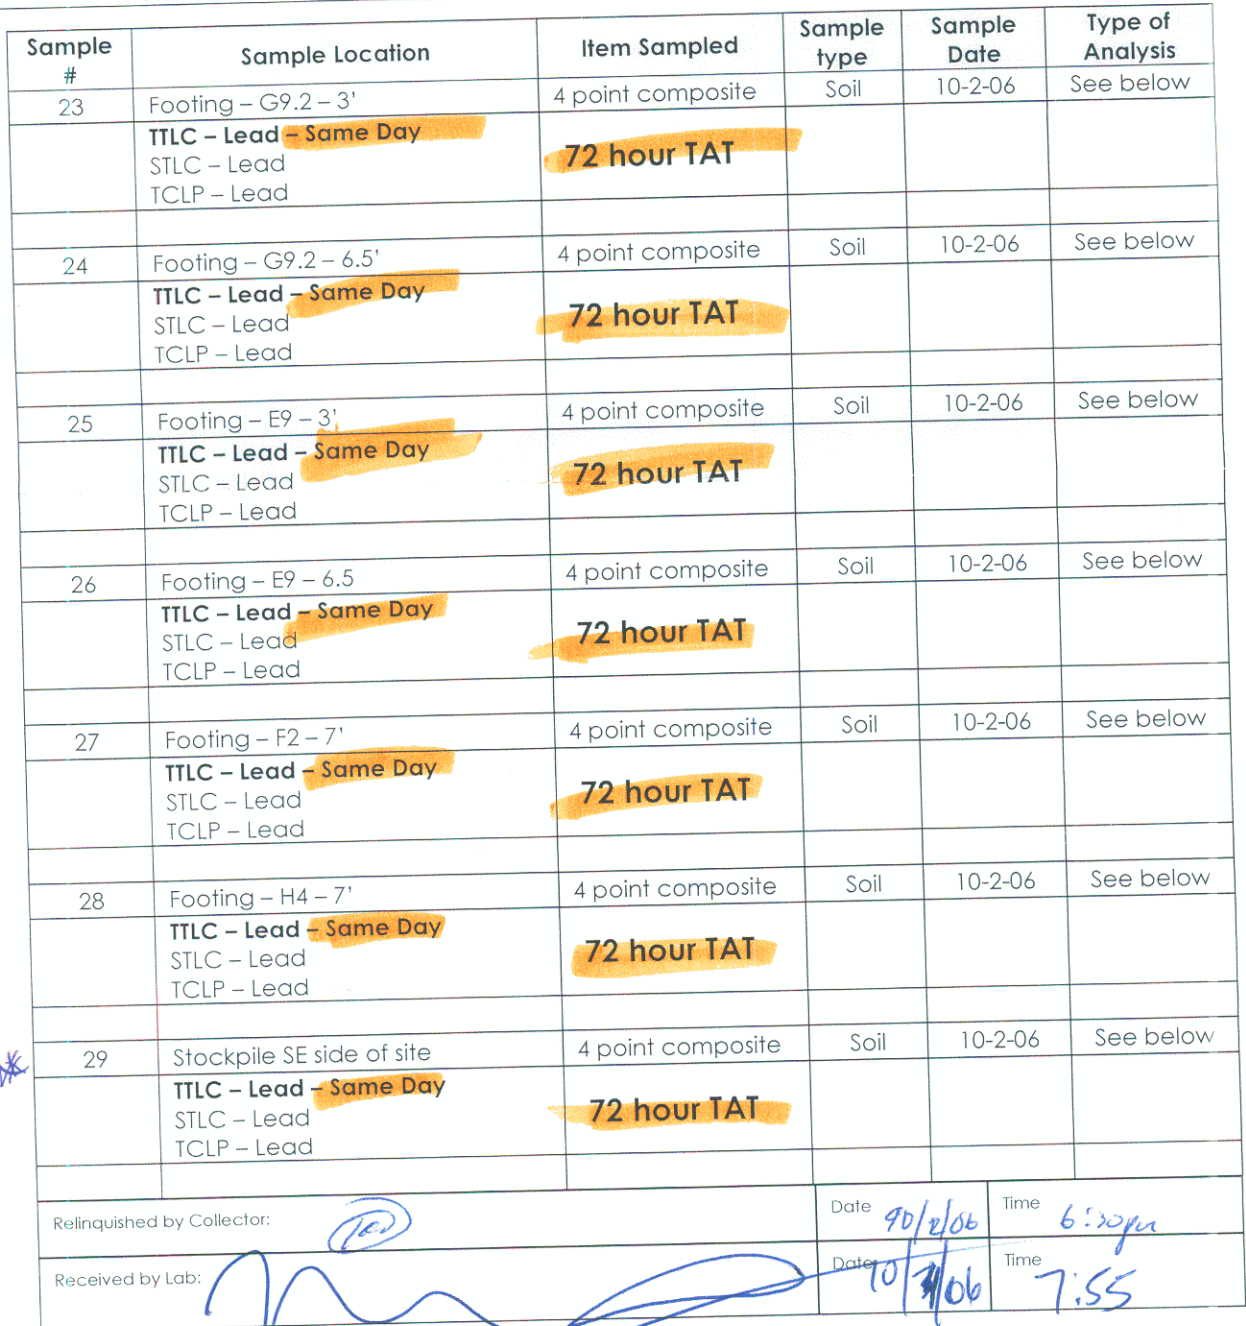 Sample # Sample Location Item Sampled Sample type Sample Date Type of Analysis
23 Footing – G9.2 – 3' 4 point composite Soil 10-2-06 See below
TTLC – Lead – Same Day
72 hour TAT
STLC – Lead
TCLP – Lead
24 Footing – G9.2 – 6.5' 4 point composite Soil 10-2-06 See below
TTLC – Lead – Same Day
72 hour TAT
STLC – Lead
TCLP – Lead
25 Footing – E9 – 3' 4 point composite Soil 10-2-06 See below
TTLC – Lead – Same Day
72 hour TAT
STLC – Lead
TCLP – Lead
26 Footing – E9 – 6.5 4 point composite Soil 10-2-06 See below
TTLC – Lead – Same Day
72 hour TAT
STLC – Lead
TCLP – Lead
27 Footing – F2 – 7' 4 point composite Soil 10-2-06 See below
TTLC – Lead – Same Day
72 hour TAT
STLC – Lead
TCLP – Lead
28 Footing – H4 – 7' 4 point composite Soil 10-2-06 See below
TTLC – Lead – Same Day
72 hour TAT
STLC – Lead
TCLP – Lead
29 Stockpile SE side of site 4 point composite Soil 10-2-06 See below
TTLC – Lead – Same Day
72 hour TAT
STLC – Lead
TCLP – Lead
Relinquished by Collector: Date Time 6:30pm
Received by Lab: Date Time 7:55